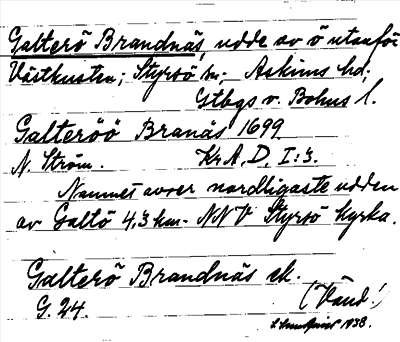 Galterö Brandnäs, udde av ö utanför
Västkusten; Styrsö sn; Askims hd;
Gtbgs o. Bohus l.
Galteröö Branäs 1699
N. Ström. Kr.A. D. I:3.
Namnet avser nordligaste udden
av Galtö 4,3 km. NNV Styrsö kyrka.
Galterö Brandnäs ek.
G. 24. (Vänd!)
1938.